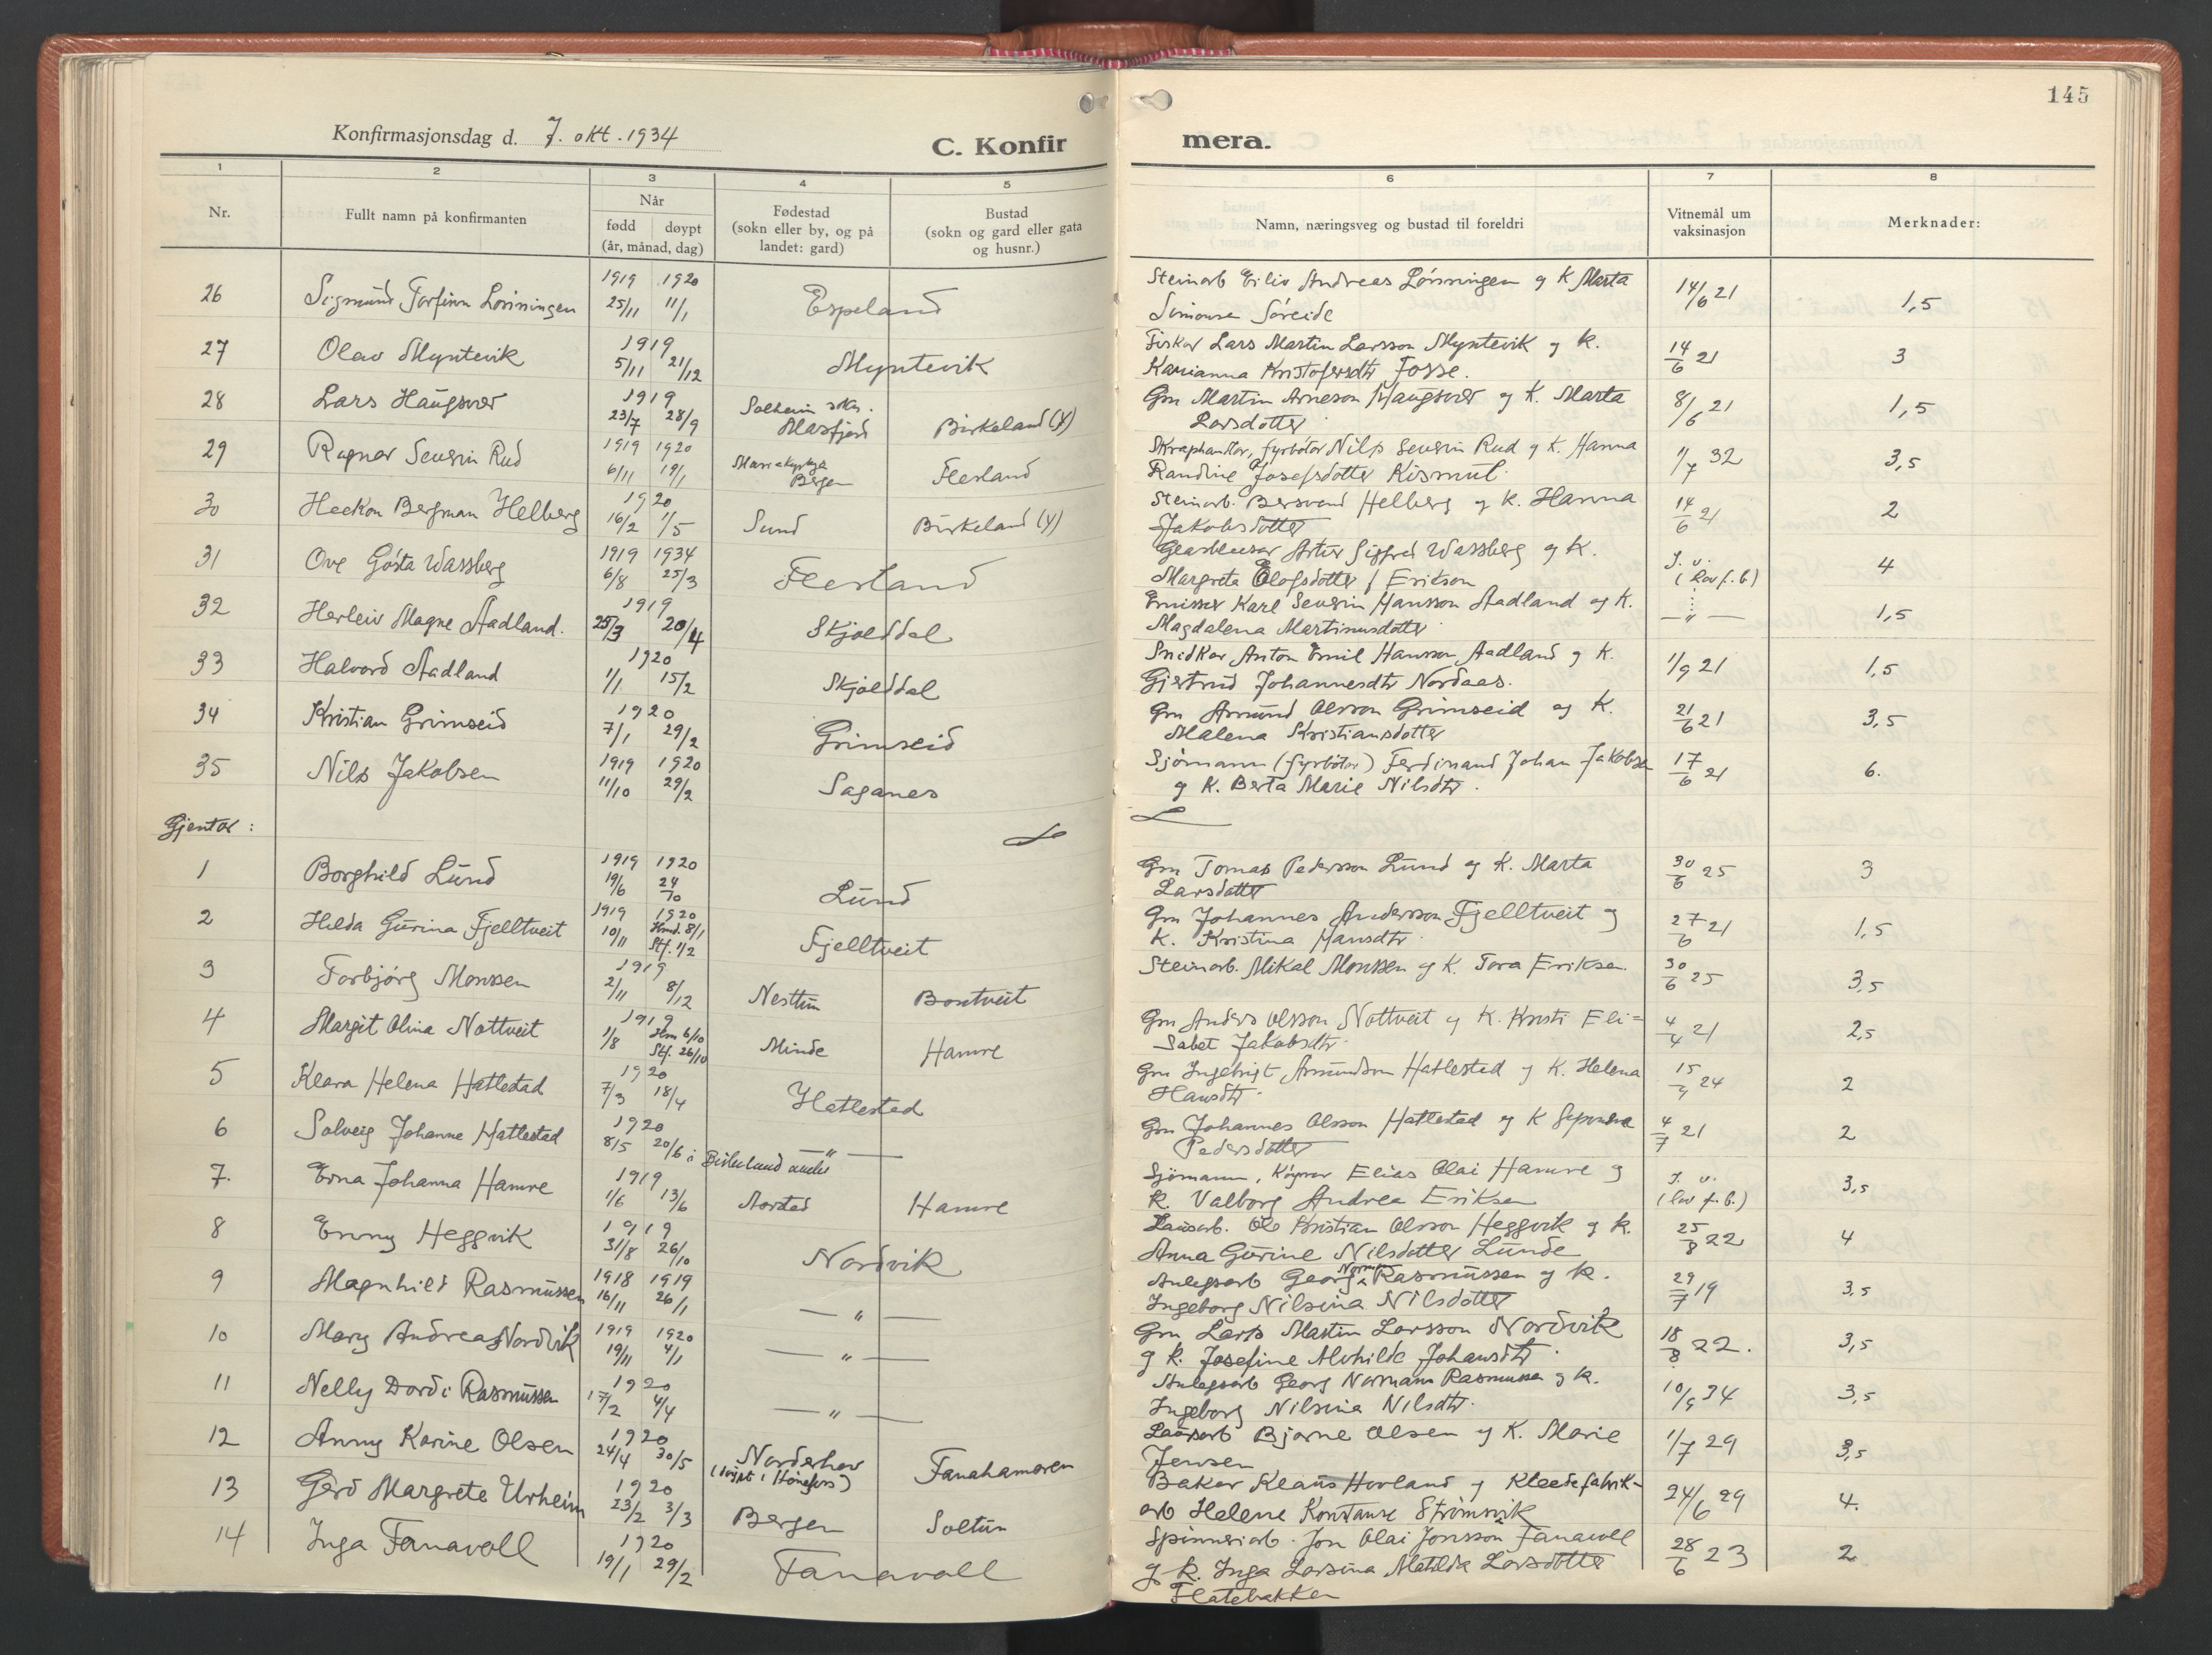 145
Konfirmasjonsdag d. 7. okt. 1934
C. Konfirmera.
1 2 3 4 5 6 7 8
Nr.
Fullt namn på konfirmanten
Når
fødd døypt
(år, månad, dag)
Fødestad
(sokn eller by, og på
landet: gard)
Bustad
(sokn og gard eller gata
og husnr.)
Namn, næringsveg og bustad til foreldri
Vitnemål um
vaksinasjon
Merknader:
26 Sigmund Torfinn Lønningen 1919 25/11 1920 11/1 Espeland
Steinarb Eiliv Andreas Lønningen og K Marta
Simonsen Søreide 14/6 21 1,5
27 Olav Myntevik 1919 5/11 21/12 Myntevik
Fiskar Lars Martin Larsson Myntevik og k.
Karianna Kristofersdtr Fosse. 14/6 21 3
28 Lars Haugsvær 1919 23/7 28/9 Solheim sokn. Masfjord Birkeland (Y)
Gm Martin Arneson Haugsvær og K. Marta
Larsdotter 8/6 21 1,5
29 Ragnar Severin Rud 1919 6/11 1920 19/1 Mariakyrkja Bergen Flesland
Skraphandlar, fyrbøtar Nils Severin Rud og K. Hanna
Randine Josefsdotter Kismul 1/7 32 3,5
30 Haakon Bergman Helberg 1920 16/2 1/5 Sund Birkeland (Y)
Steinarb. Bersvend Helberg og K. Hanna
Jakobsdotter 14/6 21 2
31 Ove Gøsta Wassberg 1919 6/8 1934 25/3 Flesland
Glasblesar Artur Sigfred Wassberg og K.
Margreta Elofsdotter f Erikson J. v. (lov f. b.) 4
32 Herleiv Magne Aadland. 1919 25/3 20/4 Skjolddal
Emissær Karl Severin Hansson Aadland og K.
Magdalena Martinusdotter — " — 1,5
33 Halvard Aadland 1920 1/1 15/2 Skjolddal
Snidkar Anton Emil Hansson Aadland og K.
Gjertrud Johannesdtr Nordaas. 1/9 21 1,5
34 Kristian Grimseid 1920 7/1 29/2 Grimseid
Gm Amund Olsson Grimseid og K.
Malena Kristiansdotter 21/6 21 3,5
35 Nils Jakobsen 1919 11/10 1920 29/2 Saganes
Sjømann (fyrbøtar) Ferdinand Johan Jakobsen
og K. Berta Marie Nilsdtr. 17/6 21 6.
Gjentor:
1 Borghild Lund 1919 19/6 1920 24/10 Lund
Gm Tomas Pedersson Lund og K. Marta
Larsdotter 30/6 25 3
2 Hilda Gurina Fjelltveit 1919 10/11 1920 Hmd. 8/1 Stf. 1/2 Fjelltveit
Gm Johannes Andersson Fjelltveit og
K. Kristina Hansdtr 27/6 21 1,5
3 Torbjørg Monssen 1919 2/11 8/12 Nesttun Bontveit
Steinarb. Mikal Monssen og K. Tora Eriksen. 30/6 25 3,5
4 Margit Olina Nottveit 1919 1/8 Hm 6/10 Stf. 26/10 Minde Hamre
Gm Anders Olsson Nottveit og K. Kristi Eli=
sabet Jakobsdtr 4/4 21 2,5
5 Klara Helena Hatlestad 1920 7/3 18/4 Hatlestad
Gm Ingebrigt Amundson Hatlestad og K. Helena
Hansdtr 15/9 24 2
6 Solveig Johanne Hatlestad 1920 8/5 20/6 i Birkeland — " —
Gm Johannes Olsson Hatlestad og K
Pedersdotter 4/7 21 2
7. Erna Johanna Hamre 1919 1/6 13/6 Aarstad Hamre
Sjømann, Elias Olai Hamre og
K. Valborg Andrea Eriksen J. v. (lov f. b.) 3,5
8 Enny Heggvik 1919 31/8 26/10 Nordvik
Lausarb. Ole Kristian Olsson Heggvik og k.
Anna Gurine Nilsdotter Lunde 25/8 22 4
9 Magnhild Rasmussen 1918 16/11 1919 26/1 — " —
Anlegsarb Georg Norman Rasmussen og k.
Ingeborg Nilsina Nilsdotter 29/7 19 3,5
10 Mary Andrea Nordvik 1919 19/11 1920 4/1 — " —
Gm Lars Martin Larsson Nordvik
og k. Josefine Alvhilde Johansdtr. 18/8 22. 3,5
11 Nelly Dordi Rasmussen 1920 17/2 4/4 — " —
Anlegsarb Georg Normann Rasmussen og k.
Ingeborg Nilsina Nilsdtr. 10/9 34 3,5
12 Anny Karine Olsen 1920 24/4 30/5 Norderhov (døypt i Hønefoss) Fanahamaren
Lausarb Bjarne Olsen og K. Marie
Jensen 1/7 29 3,5
13 Gerd Margrete Urheim 1920 23/2 3/3 Bergen Soltun
Bakar Klaus Hovland og Klædefabrik-
arb Helene Konstanse Strømsvik 24/6 29 4.
14 Inga Fanavoll 1920 19/1 29/2 Fanavoll
Spinneriarb. Jon Olai Jonsson Fanavoll
og k. Inga Larsina Matilda Larsdotter
Flatebakken 28/6 23 2